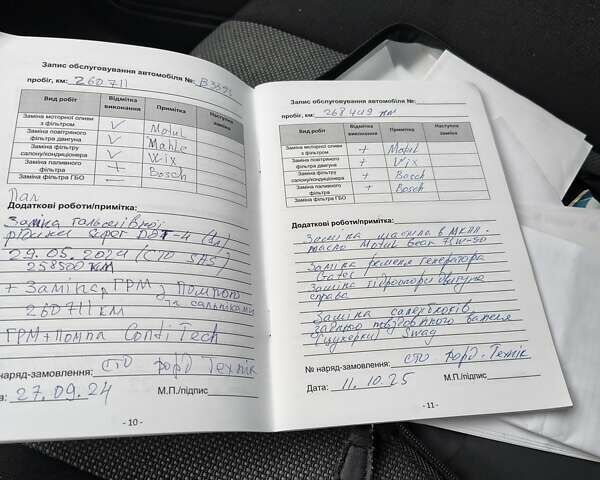 Запис обслуговування автомобіля №: B3393
пробіг, км: 260711
Вид робіт Відмітка виконання Примітка Наступна заміна
Заміна моторної оливи з фільтром ✓ Motul
Заміна повітряного фільтра двигуна ✓ Mahle
Заміна фільтру салону/кондиціонера ✓ Wix
Заміна паливного фільтра + Bosch
Заміна фільтр ГБО —
Пал
Додаткові роботи/примітка:
Заміна гальмівної
рідини Super DOT-4
29.05.2024 (СТО SAS)
258500 км
+ Заміна ГРМ з Помпою
та сальниками
260711 км
ГРМ+Помпа ContiTech
наряд-замовлення: СТО Форд Технік
27.09.24 М.П./підпис
- 10 -
Запис обслуговування автомобіля №:
пробіг, км: 268449 км
Вид робіт Відмітка виконання Примітка Наступна заміна
Заміна моторної оливи з фільтром + Motul
Заміна повітряного фільтра двигуна + Wix
Заміна фільтру салону/кондиціонера + Bosch
Заміна паливного фільтра + Bosch
Заміна фільтр ГБО
Додаткові роботи/примітка:
Заміна мастила в МКПП.
масло Motul Gear 75W-80
Заміна ременя генератора
Gates
Заміна гідроопори двигуна
справа
Заміна салентблоків
заднього важеля
Swag
№ наряд-замовлення: СТО Форд-Технік
Дата: 11.10.25 М.П./підпис
- 11 -